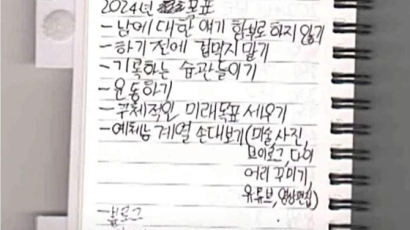 2024년 목표
- 남에 대한 얘기 함부로 하지 않기
- 하기 전에 겁먹지 말기
- 기록하는 습관들이기
- 운동하기
- 구체적인 미래목표 세우기
- 예체능 계열 손대보기(미술, 사진,
브이로그, 다이
어리 꾸미기,
유튜브, 영상편집)
- 블로그